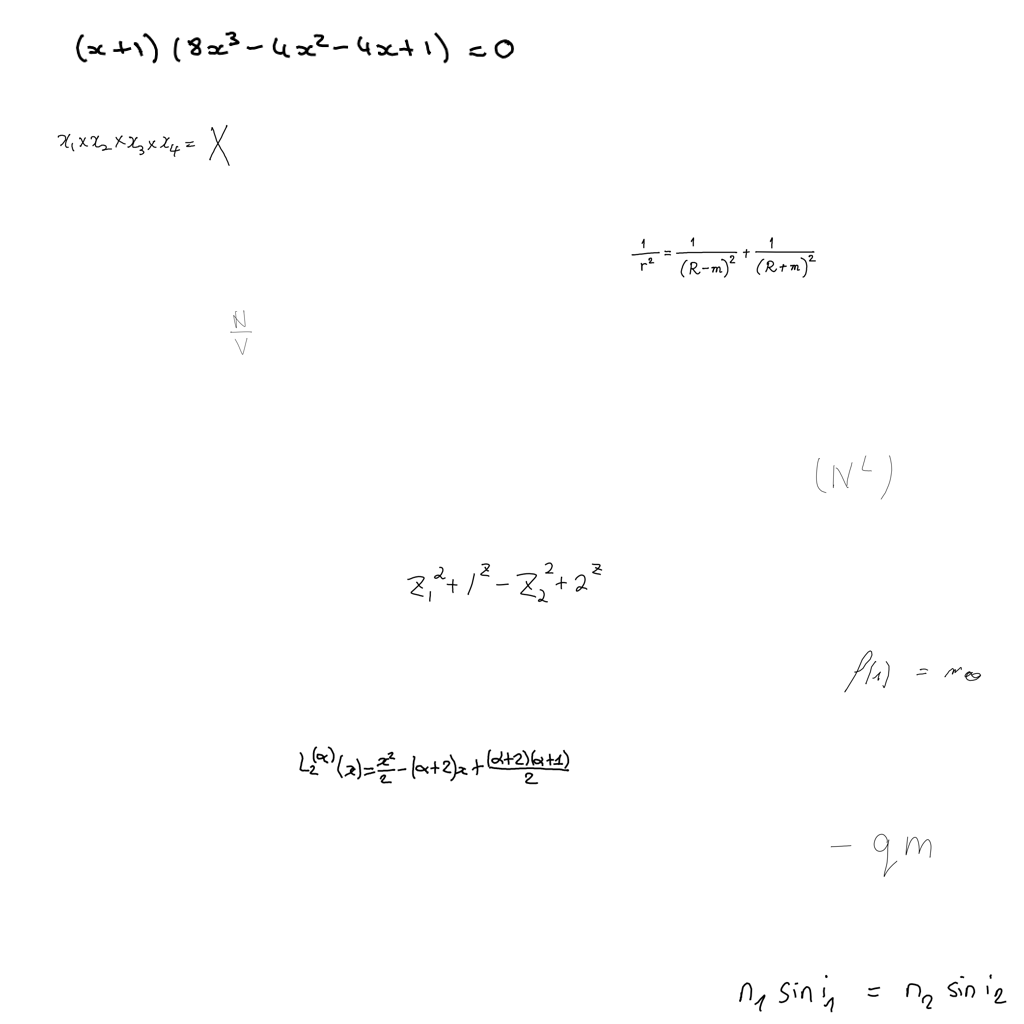 (x+1)(8x³-4x²-4x+1)=0
x₁×x₂×x₃×x₄=X
\frac{1}{r²}=\frac{1}{(R-m)²}+\frac{1}{(R+m)²}
\frac{N}{V}
(N^L)
z₁²+1^z-z₂²+2^z
f(1)=m_∞
L₂^{(α)}(x)=\frac{x²}{2}-(α+2)x+\frac{(α+2)(α+1)}{2}
-qm
n₁ sin i₁ = n₂ sin i₂